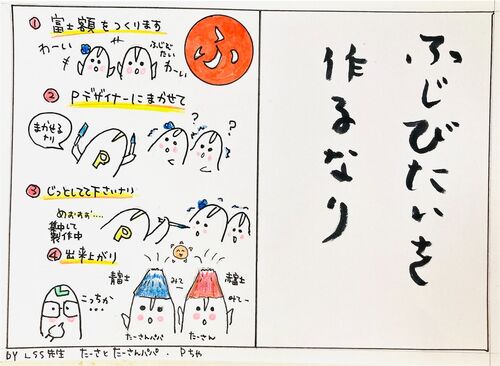 ① 富士額をつくります
わーい
ふじびたい
わーい
ふ
② Pデザイナーにまかせて
まかせるナリ
P
?
?
③ じっとしてて下さいナリ
めおすおす....
集中して
製作中
P
④ 出来上がり
青富士
みて~
赤富士
みてー
こっちか...
たーさんパパ
たーさん
ふじびたいを
作るなり
by LSS先生 たーさと たーさんパパ . Pちゃ